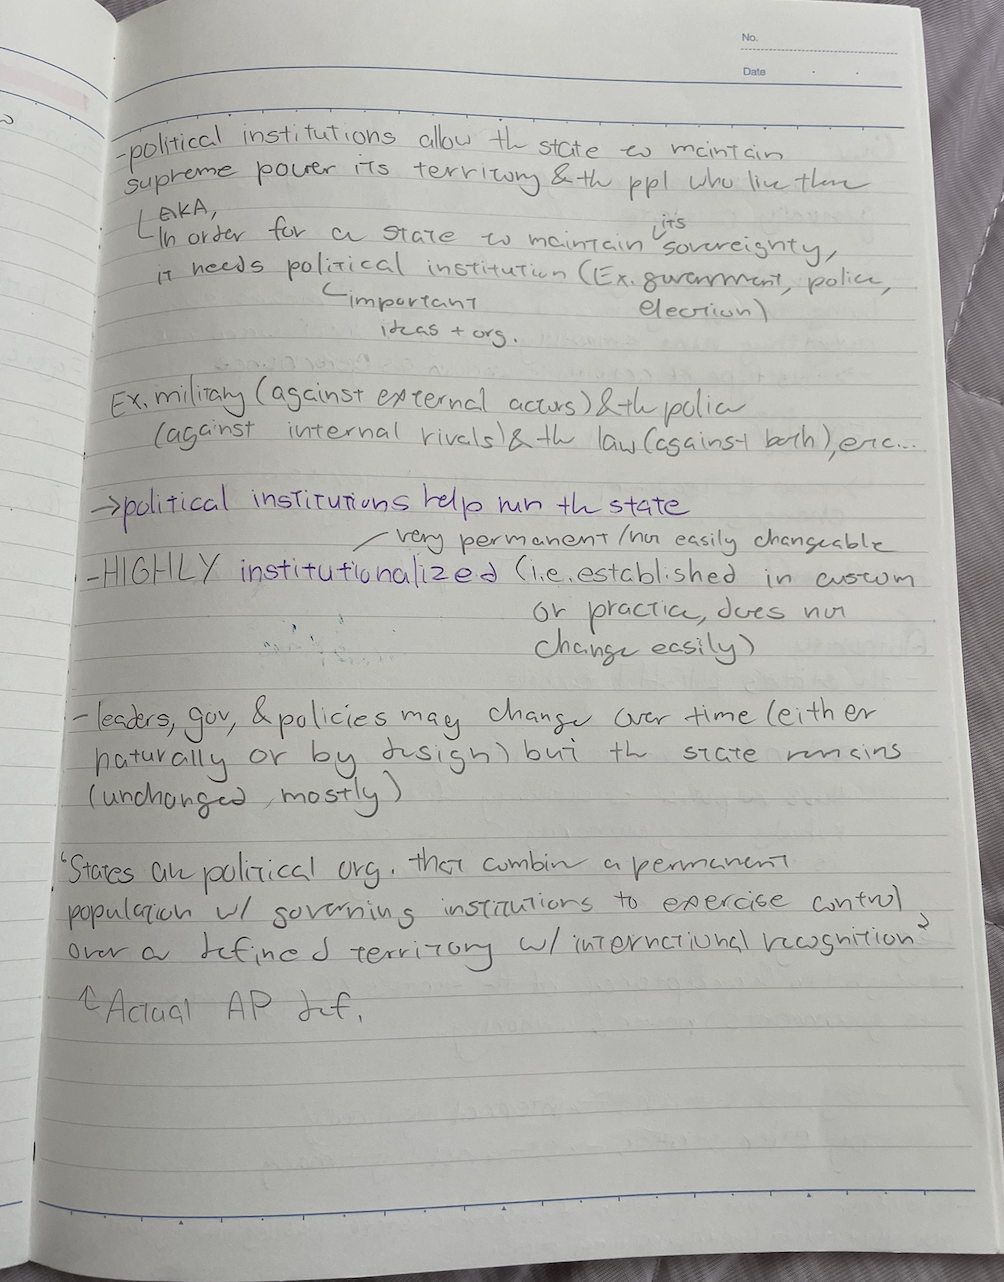 No.
Date
-political institutions allow the state to maintain
supreme power its territory & the ppl who live there
AKA,
its
In order for a state to maintain sovereignty,
it needs political institution (Ex. government, police,
important election)
ideas + org.
Ex. military (against external actors) & the police
(against internal rivals) & the law (against both), etc...
→political institutions help run the state
very permanent/not easily changeable
-HIGHLY institutionalized (i.e. established in custom
or practice, does not
change easily)
- leaders, gov, & policies may change over time (either
naturally or by design) but the state remains
(unchanged, mostly)
"States are political org. that combine a permanent
population w/ governing institutions to exercise control
over a defined territory w/ international recognition"
↑Actual AP def.